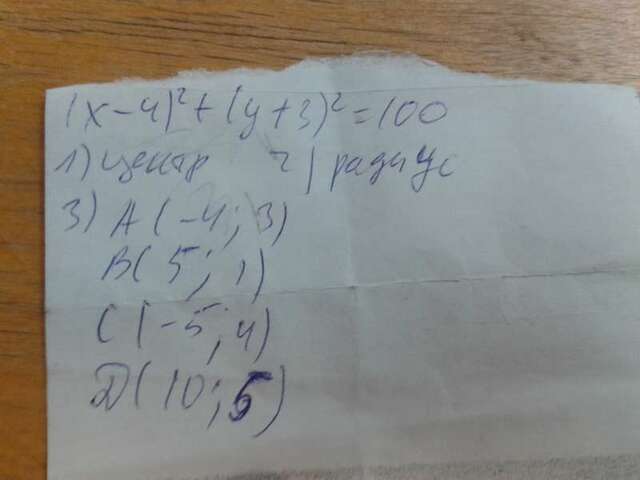 (x-4)²+(y+3)²=100
1) центр 2) радиус
3) A(-4; 3)
B(5; 1)
C(-5; 4)
D(10; 5)